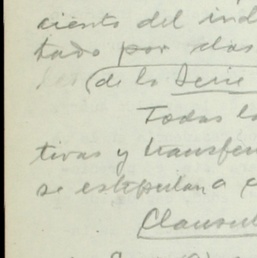 ciento del ind
tado por dos
(de la Serie
Todas lo
tivas y transfer
se estipulan a c
Clausul